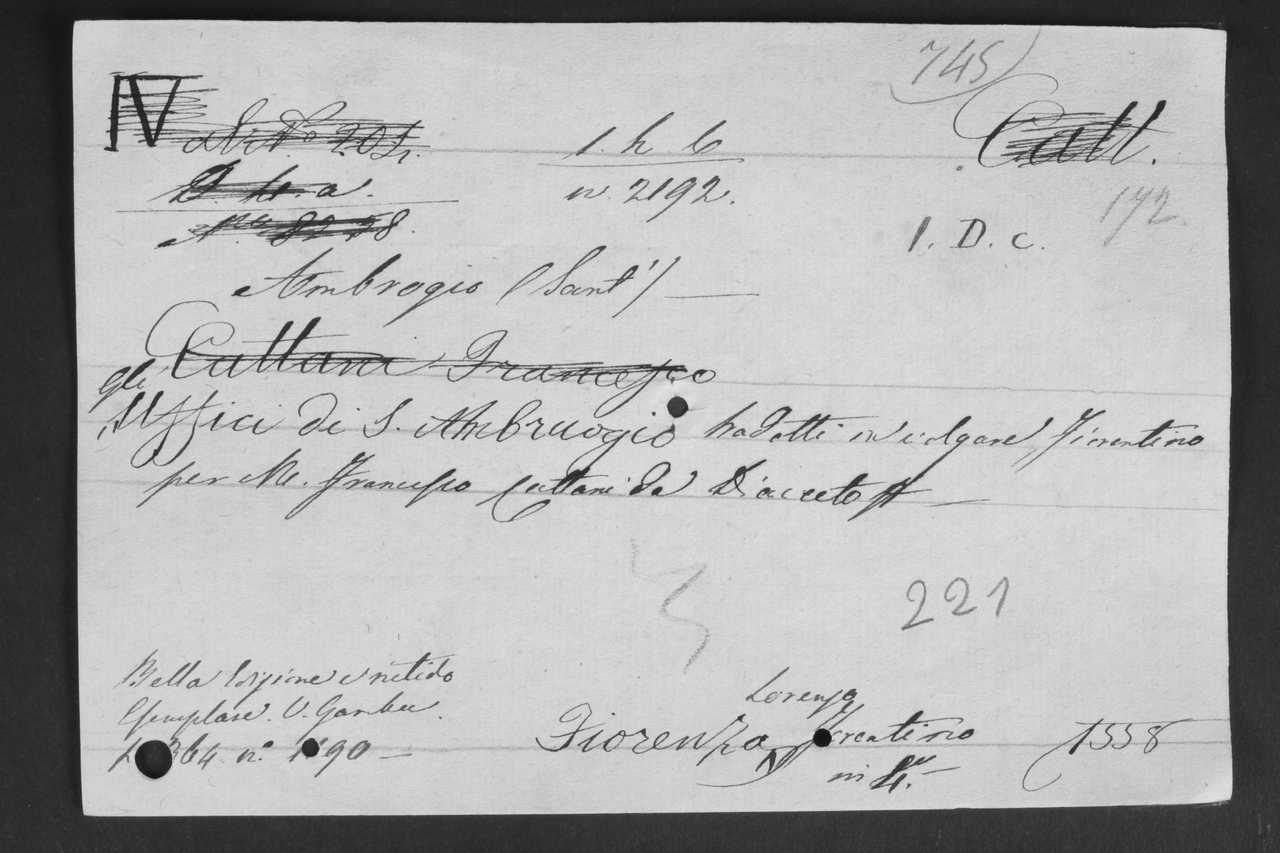 745
IV
Catt.
1. h 6
n. 2192.
172.
1. D. c.
Ambrogio (Sant')
Cattani Francesco
gli Uffici di S. Ambruogio tradotti in volgare Fiorentino
per M. Francesco Cattani da Diacceto
221
Bella edizione e nitido
Esemplare. V. Gamba
364 n.° 90
Lorenzo
Fiorenza
in 4.°
1558